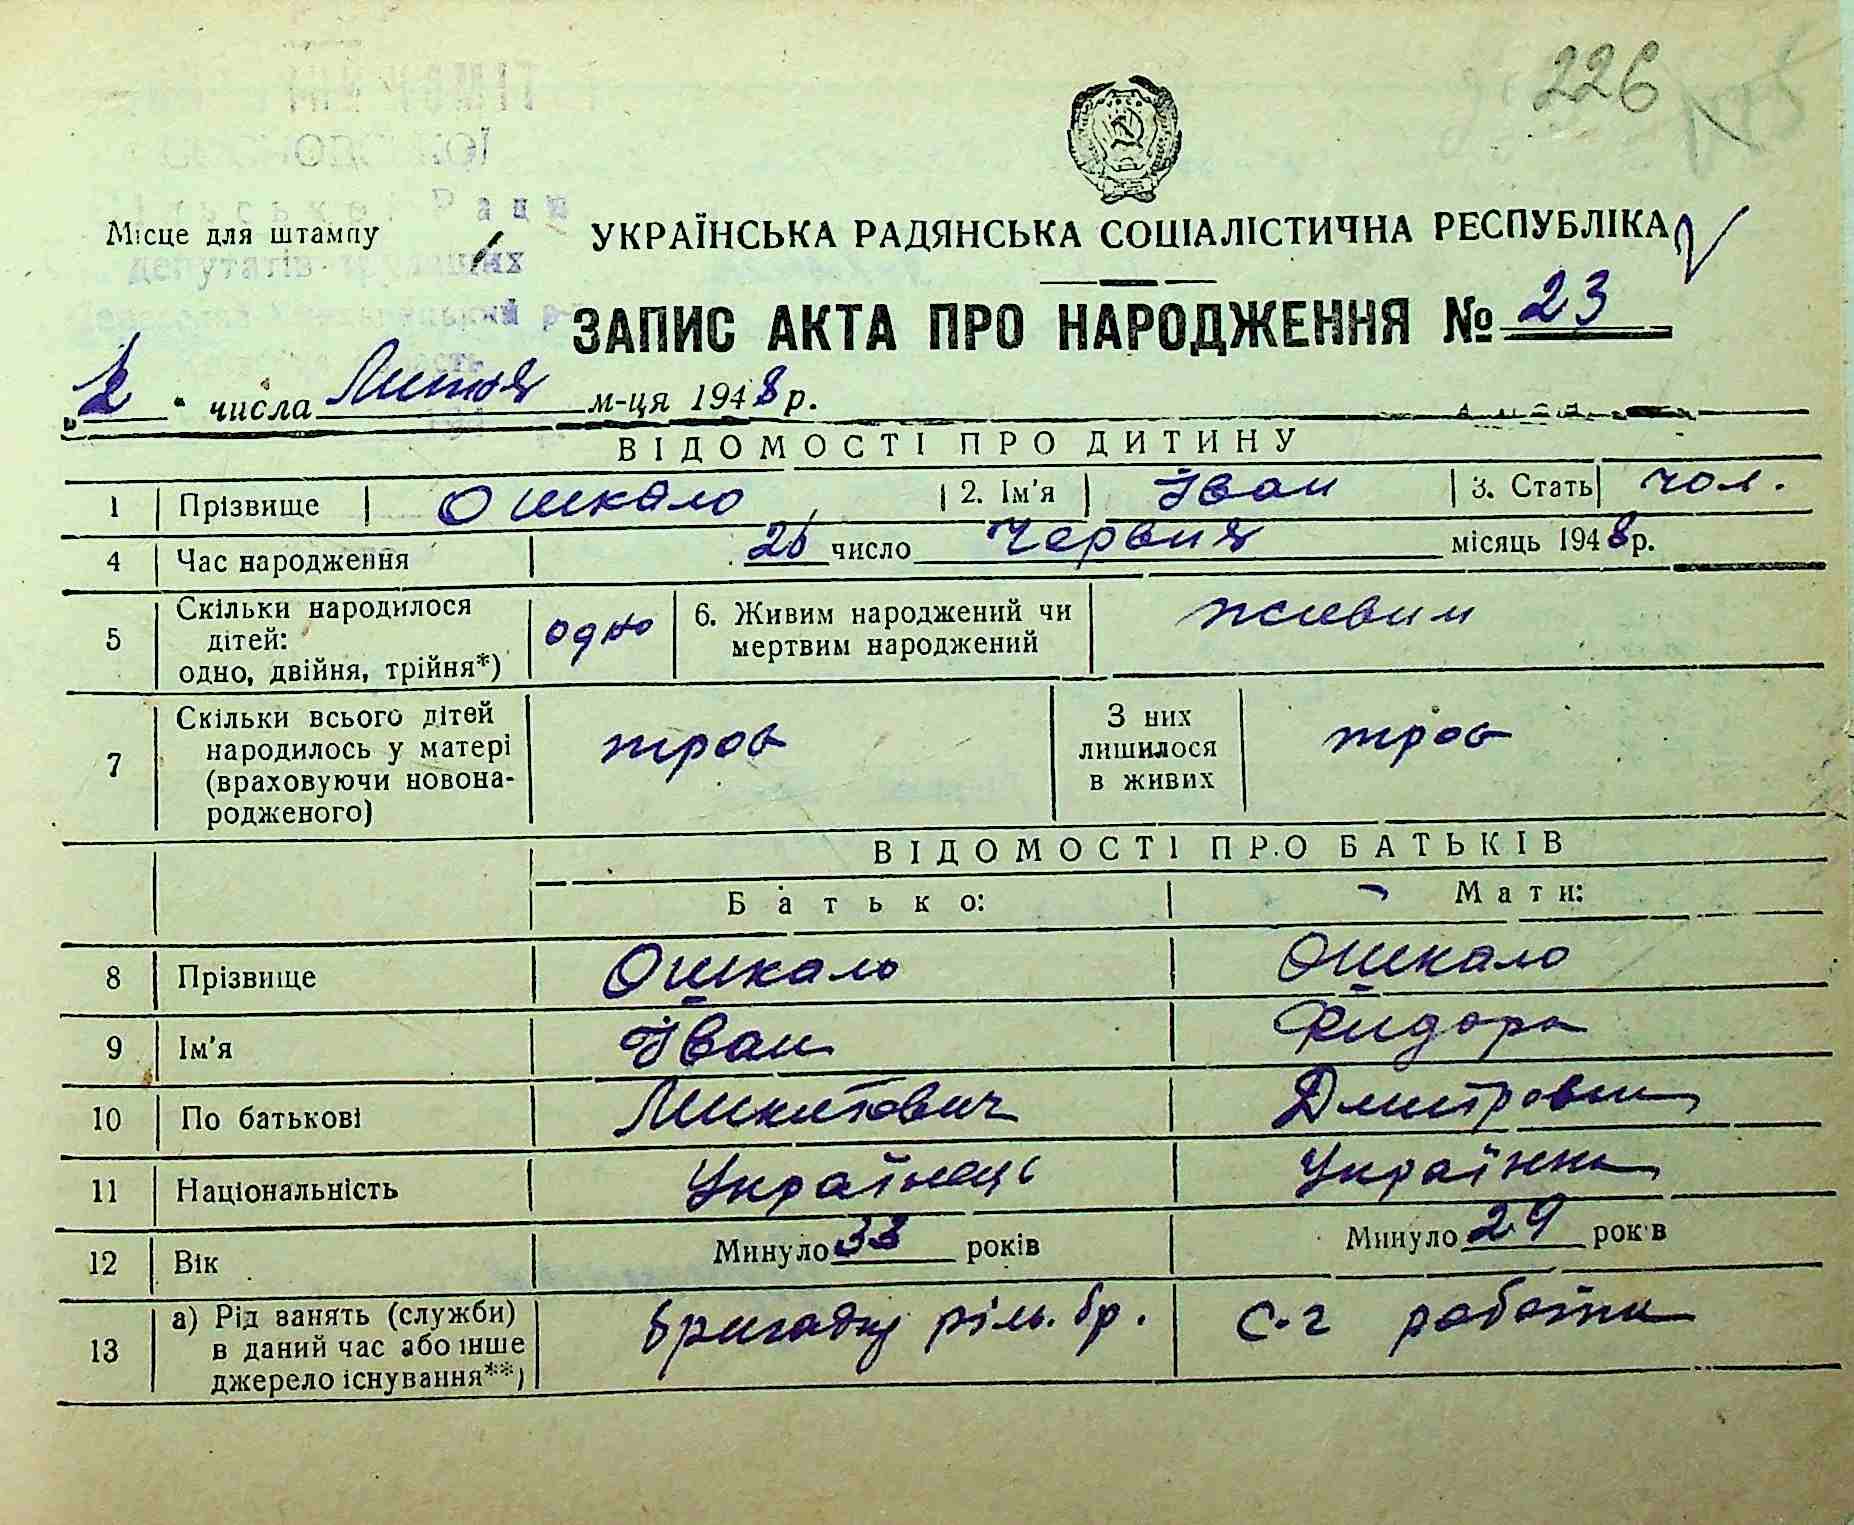 226
Місце для штампу
УКРАЇНСЬКА РАДЯНСЬКА СОЦІАЛІСТИЧНА РЕСПУБЛІКА
ЗАПИС АКТА ПРО НАРОДЖЕННЯ № 23
„2“ числа Липня м-ця 1948 р.
ВІДОМОСТІ ПРО ДИТИНУ
1 Прізвище Ошкало 2. Ім'я Іван 3. Стать чол.
4 Час народження 26 число Червня місяць 1948 р.
5 Скільки народилося дітей: одно, двійня, трійня*) одно 6. Живим народжений чи мертвим народжений живим
7 Скільки всього дітей народилось у матері (враховуючи новонародженого) троє З них лишилося в живих троє
ВІДОМОСТІ ПРО БАТЬКІВ
Батько: Мати:
8 Прізвище Ошкало Ошкало
9 Ім'я Іван Фидора
10 По батькові Микитович Дмитровн
11 Національність Українець Українка
12 Вік Минуло 33 років Минуло 29 років
13 а) Рід занять (служби) в даний час або інше джерело існування**) бригадир ріль. бр. с-г робота